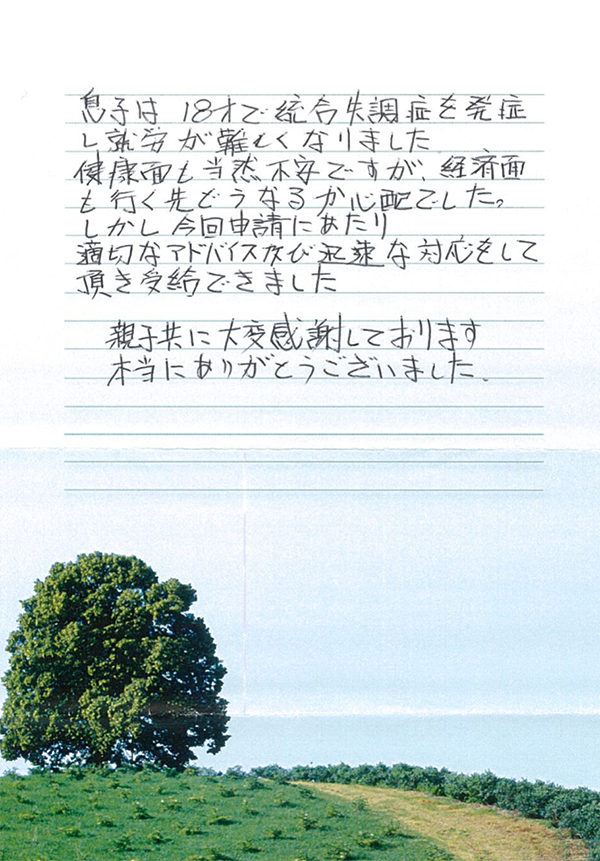 息子は 18才で統合失調症を発症
し就労が難しくなりました
健康面も当然不安ですが、経済面
も行く先どうなるか心配でした。
しかし今回申請にあたり
適切なアドバイス及び迅速な対応をして
頂き受給できました
親子共に大変感謝しております
本当にありがとうございました。